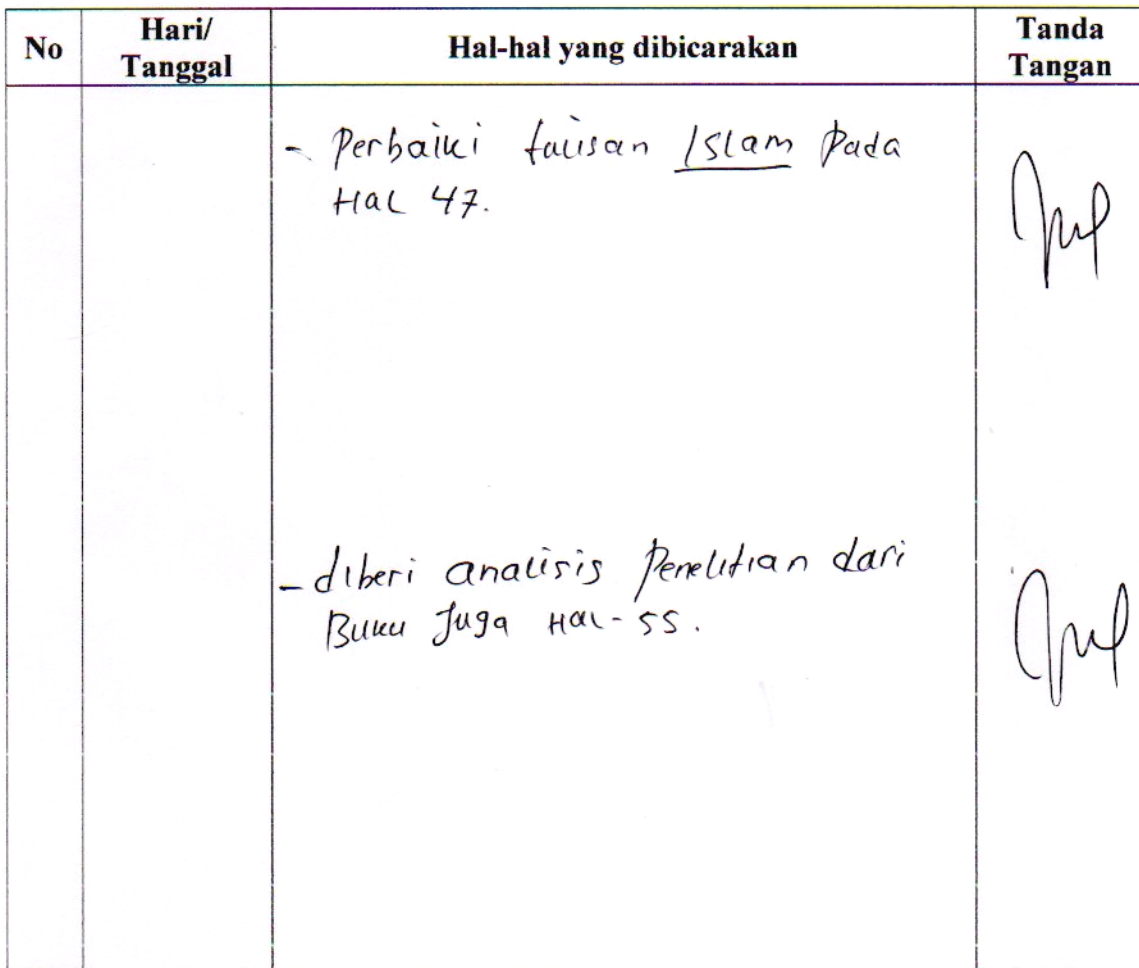 No
Hari/
Tanggal
Hal-hal yang dibicarakan
Tanda
Tangan
- Perbaiki tulisan Islam Pada
Hal 47.
- diberi analisis Penelitian dari
Buku Juga Hal-55.